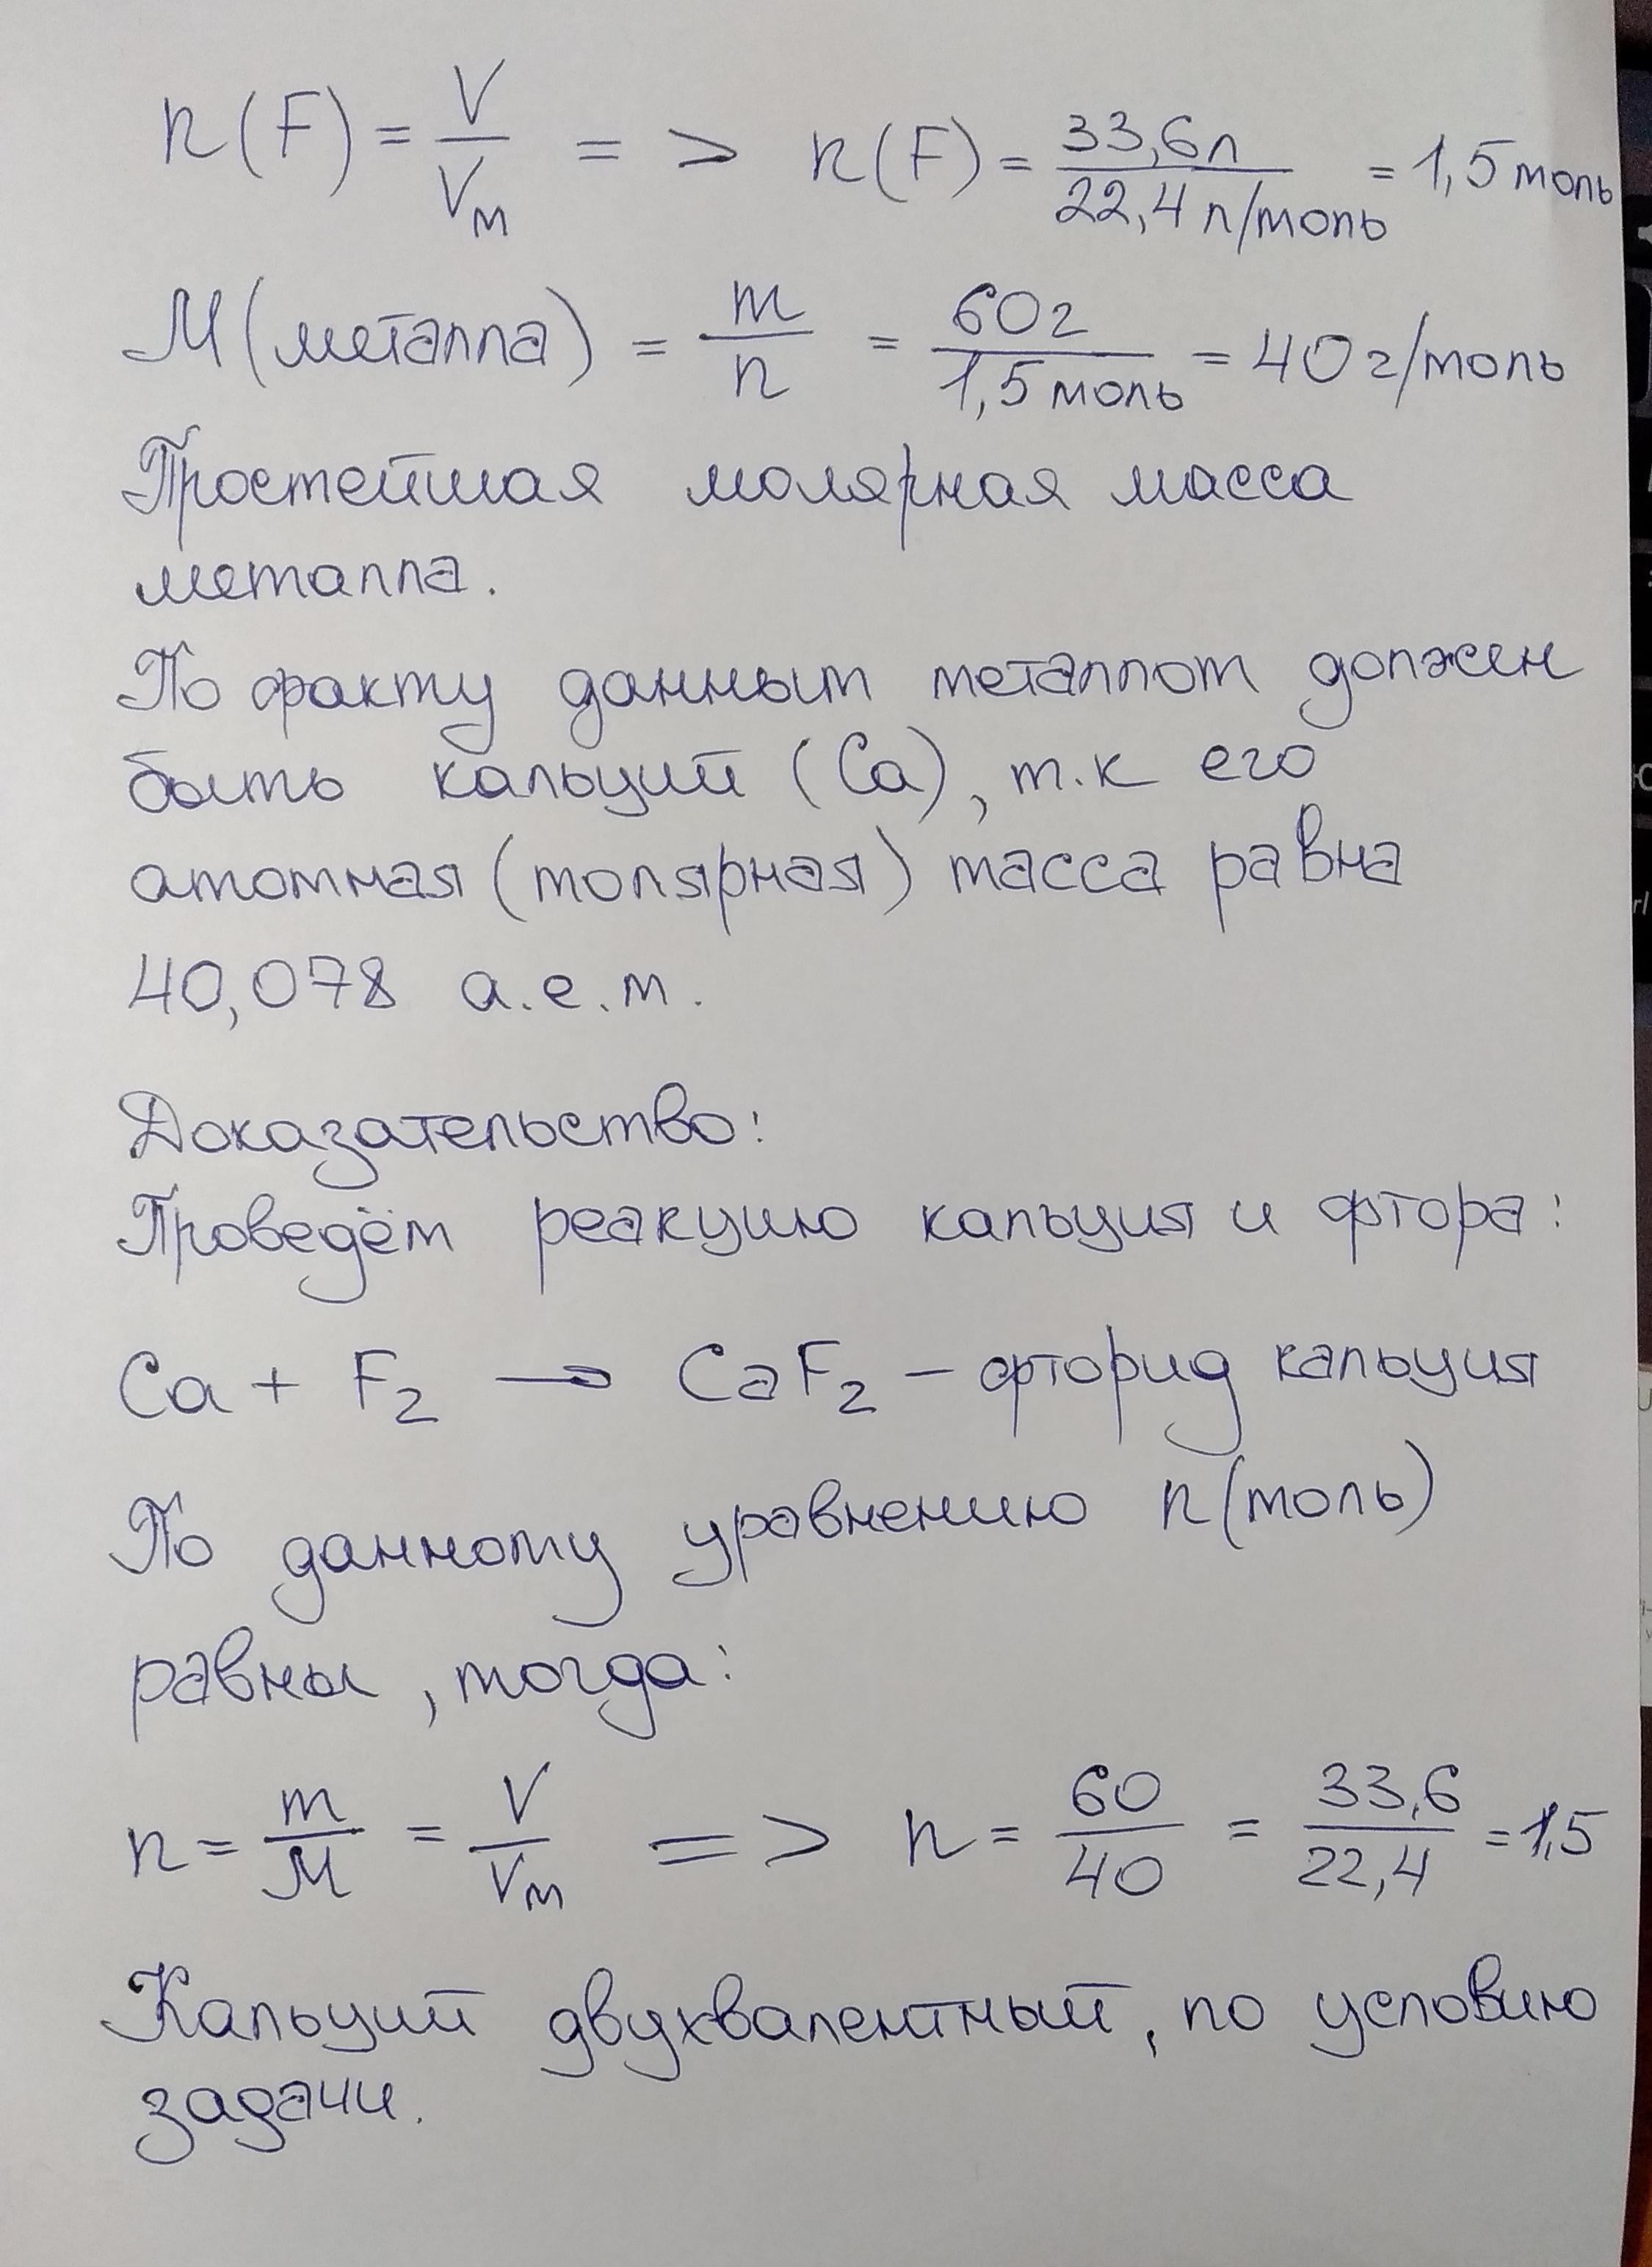 n(F) = V/Vm => n(F) = 33,6л/22,4 л/моль = 1,5 моль
М(металла) = m/n = 60г/1,5 моль = 40 г/моль
Простейшая молярная масса
металла.
По факту данным металлом должен
быть кальций (Ca), т.к его
атомная (молярная) масса равна
40,078 а.е.м.
Доказательство:
Проведём реакцию кальция и фтора:
Ca + F₂ → CaF₂ – фторид кальция
По данному уравнению n(моль)
равны, тогда:
n = m/M = V/Vm => n = 60/40 = 33,6/22,4 = 1,5
Кальций двухвалентный, по условию
задачи.